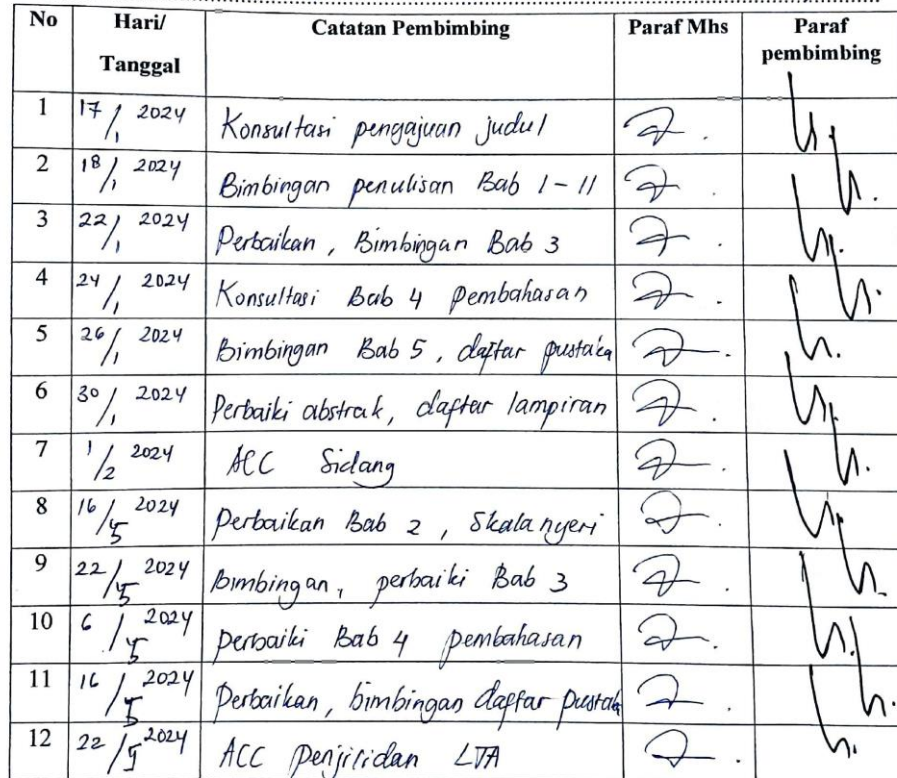 No Hari/ Tanggal Catatan Pembimbing Paraf Mhs Paraf pembimbing
1 17/1 2024 Konsultasi pengajuan judul
2 18/1 2024 Bimbingan penulisan Bab I-II
3 22/1 2024 Perbaikan, Bimbingan Bab 3
4 24/1 2024 Konsultasi Bab 4 pembahasan
5 26/1 2024 Bimbingan Bab 5, daftar pustaka
6 30/1 2024 Perbaiki abstrak, daftar lampiran
7 1/2 2024 ACC Sidang
8 16/5 2024 Perbaikan Bab 2, Skala nyeri
9 22/5 2024 Bimbingan, perbaiki Bab 3
10 6/5 2024 perbaiki Bab 4 pembahasan
11 16/5 2024 Perbaikan, bimbingan daftar pustaka
12 22/5 2024 ACC penjilidan LTA